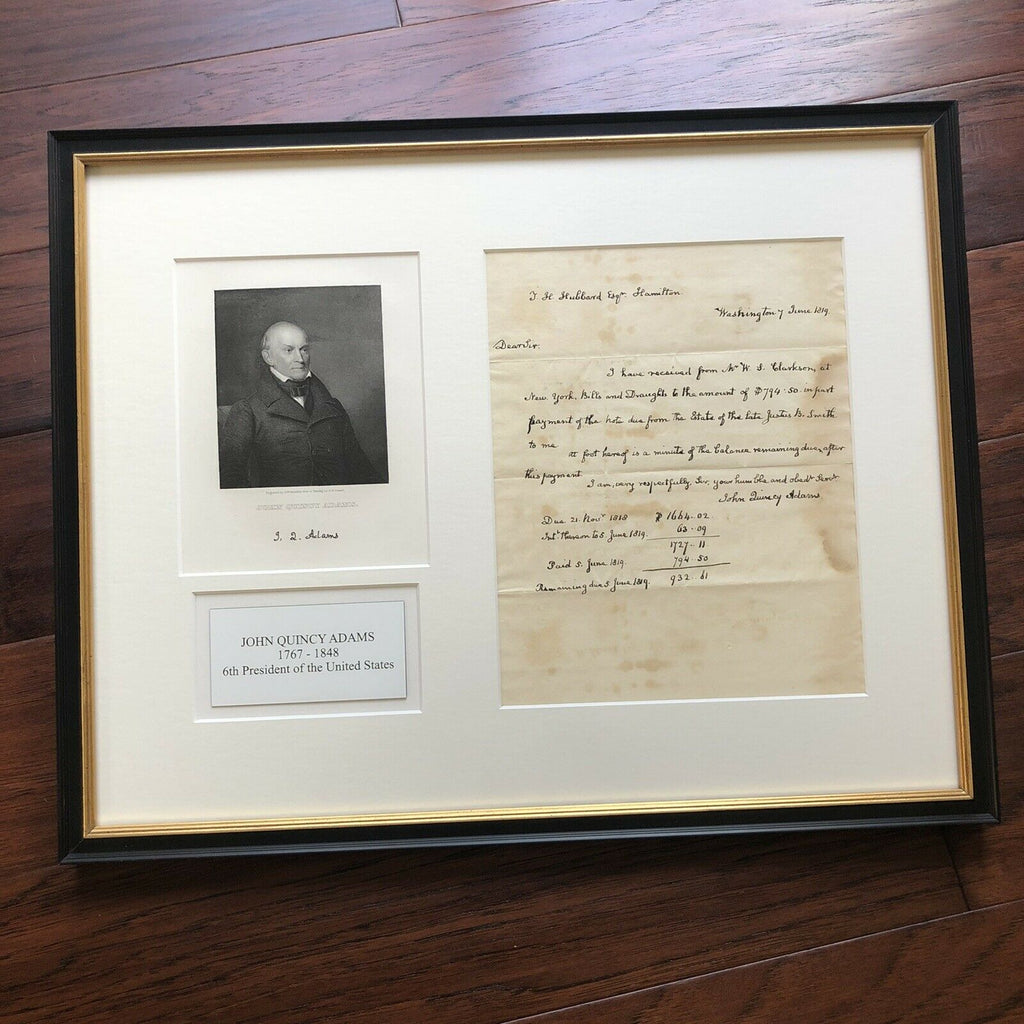 JOHN QUINCY ADAMS.
J. Q. Adams
JOHN QUINCY ADAMS
1767 - 1848
6th President of the United States
T. H. Hubbard Esqr. Hamilton
Washington 7 June 1819.
Dear Sir.
I have received from Mr W. S. Clarkson, at
New York, Bills and Draughts to the amount of $794.50 in part
payment of the note due from the Estate of the late Justus B. Smith
to me at foot hereof is a minute of the balance remaining due, after
this payment
I am, very respectfully, Sir, your humble and obedt Servt.
John Quincy Adams
Due 21. Novr 1818 $ 1664..02
Intt thereon to 5 June 1819. 63..09
1727..11
Paid 5. June 1819. 794..50
Remaining due 5 June 1819. 932..61